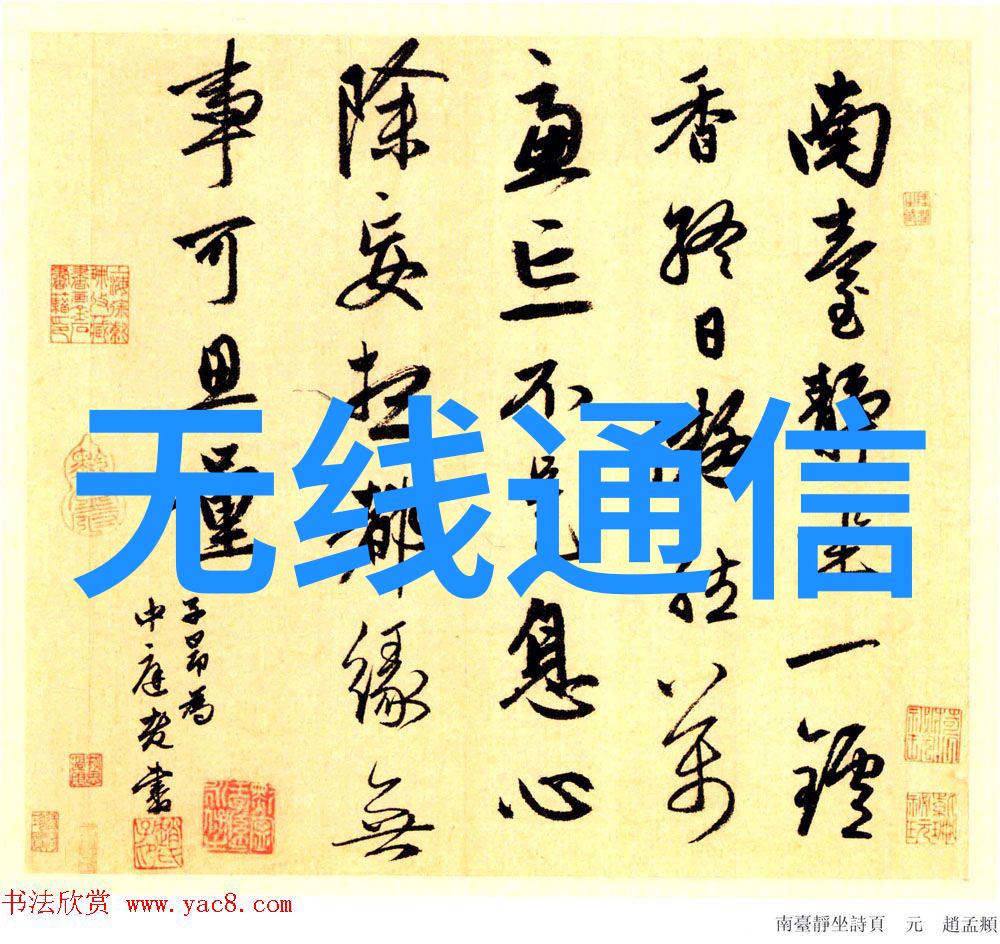 南臺靜坐一鑪
香終日凝然萬
慮亡不是息心
除妄想都緣無
事可思量
子昂為
中庭老書
无线通信
书法欣赏 www.yac8.com
南臺靜坐詩頁 元 趙孟頫